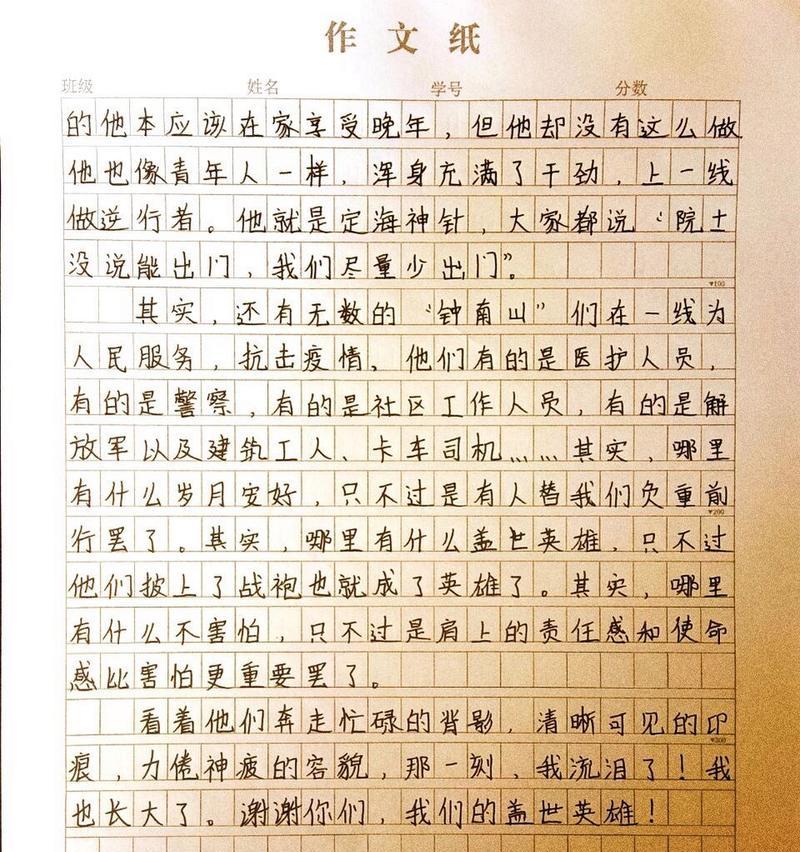 作文纸
班级 姓名 学号 分数
的他本应该在家享受晚年，但他却没有这么做
他也像青年人一样，浑身充满了干劲，上一线
做逆行者。他就是定海神针，大家都说“院士
没说能出门，我们尽量少出门”。
▼100
其实，还有无数的“钟南山”们在一线为
人民服务，抗击疫情、他们有的是医护人员，
有的是警察，有的是社区工作人员，有的是解
放军以及建筑工人、卡车司机……其实，哪里
有什么岁月安好，只不过是有人替我们负重前
▼200
行罢了。其实，哪里有什么盖世英雄，只不过
他们披上了战袍也就成了英雄了。其实，哪里
有什么不害怕，只不过是肩上的责任感和使命
感比害怕更重要罢了。
看着他们奔走忙碌的背影，清晰可见的印
▼300
痕，力倦神疲的容貌，那一刻，我流泪了！我
也长大了。谢谢你们，我们的盖世英雄！